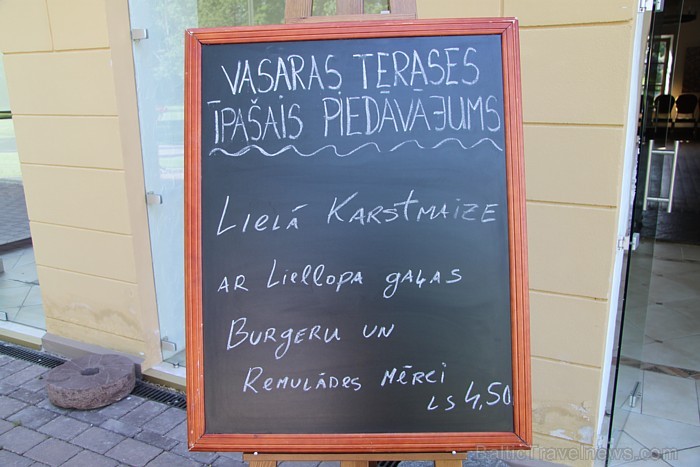 VASARAS TERASES
ĪPAŠAIS PIEDĀVĀJUMS
LIELĀ KARSTMAIZE
AR LIELLOPA GAĻAS
BURGERU UN
REMULĀDES MĒRCI
LS 4,50
BalticTravelnews.com